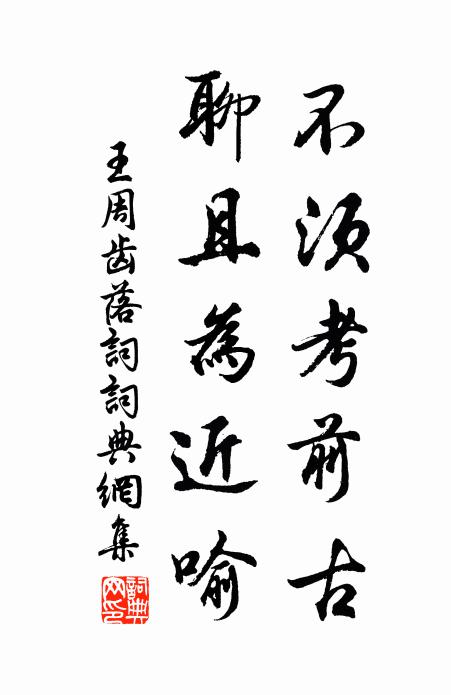 不須考前古
聊且為近喻
王周齿落詞詞典網集
詞典网印